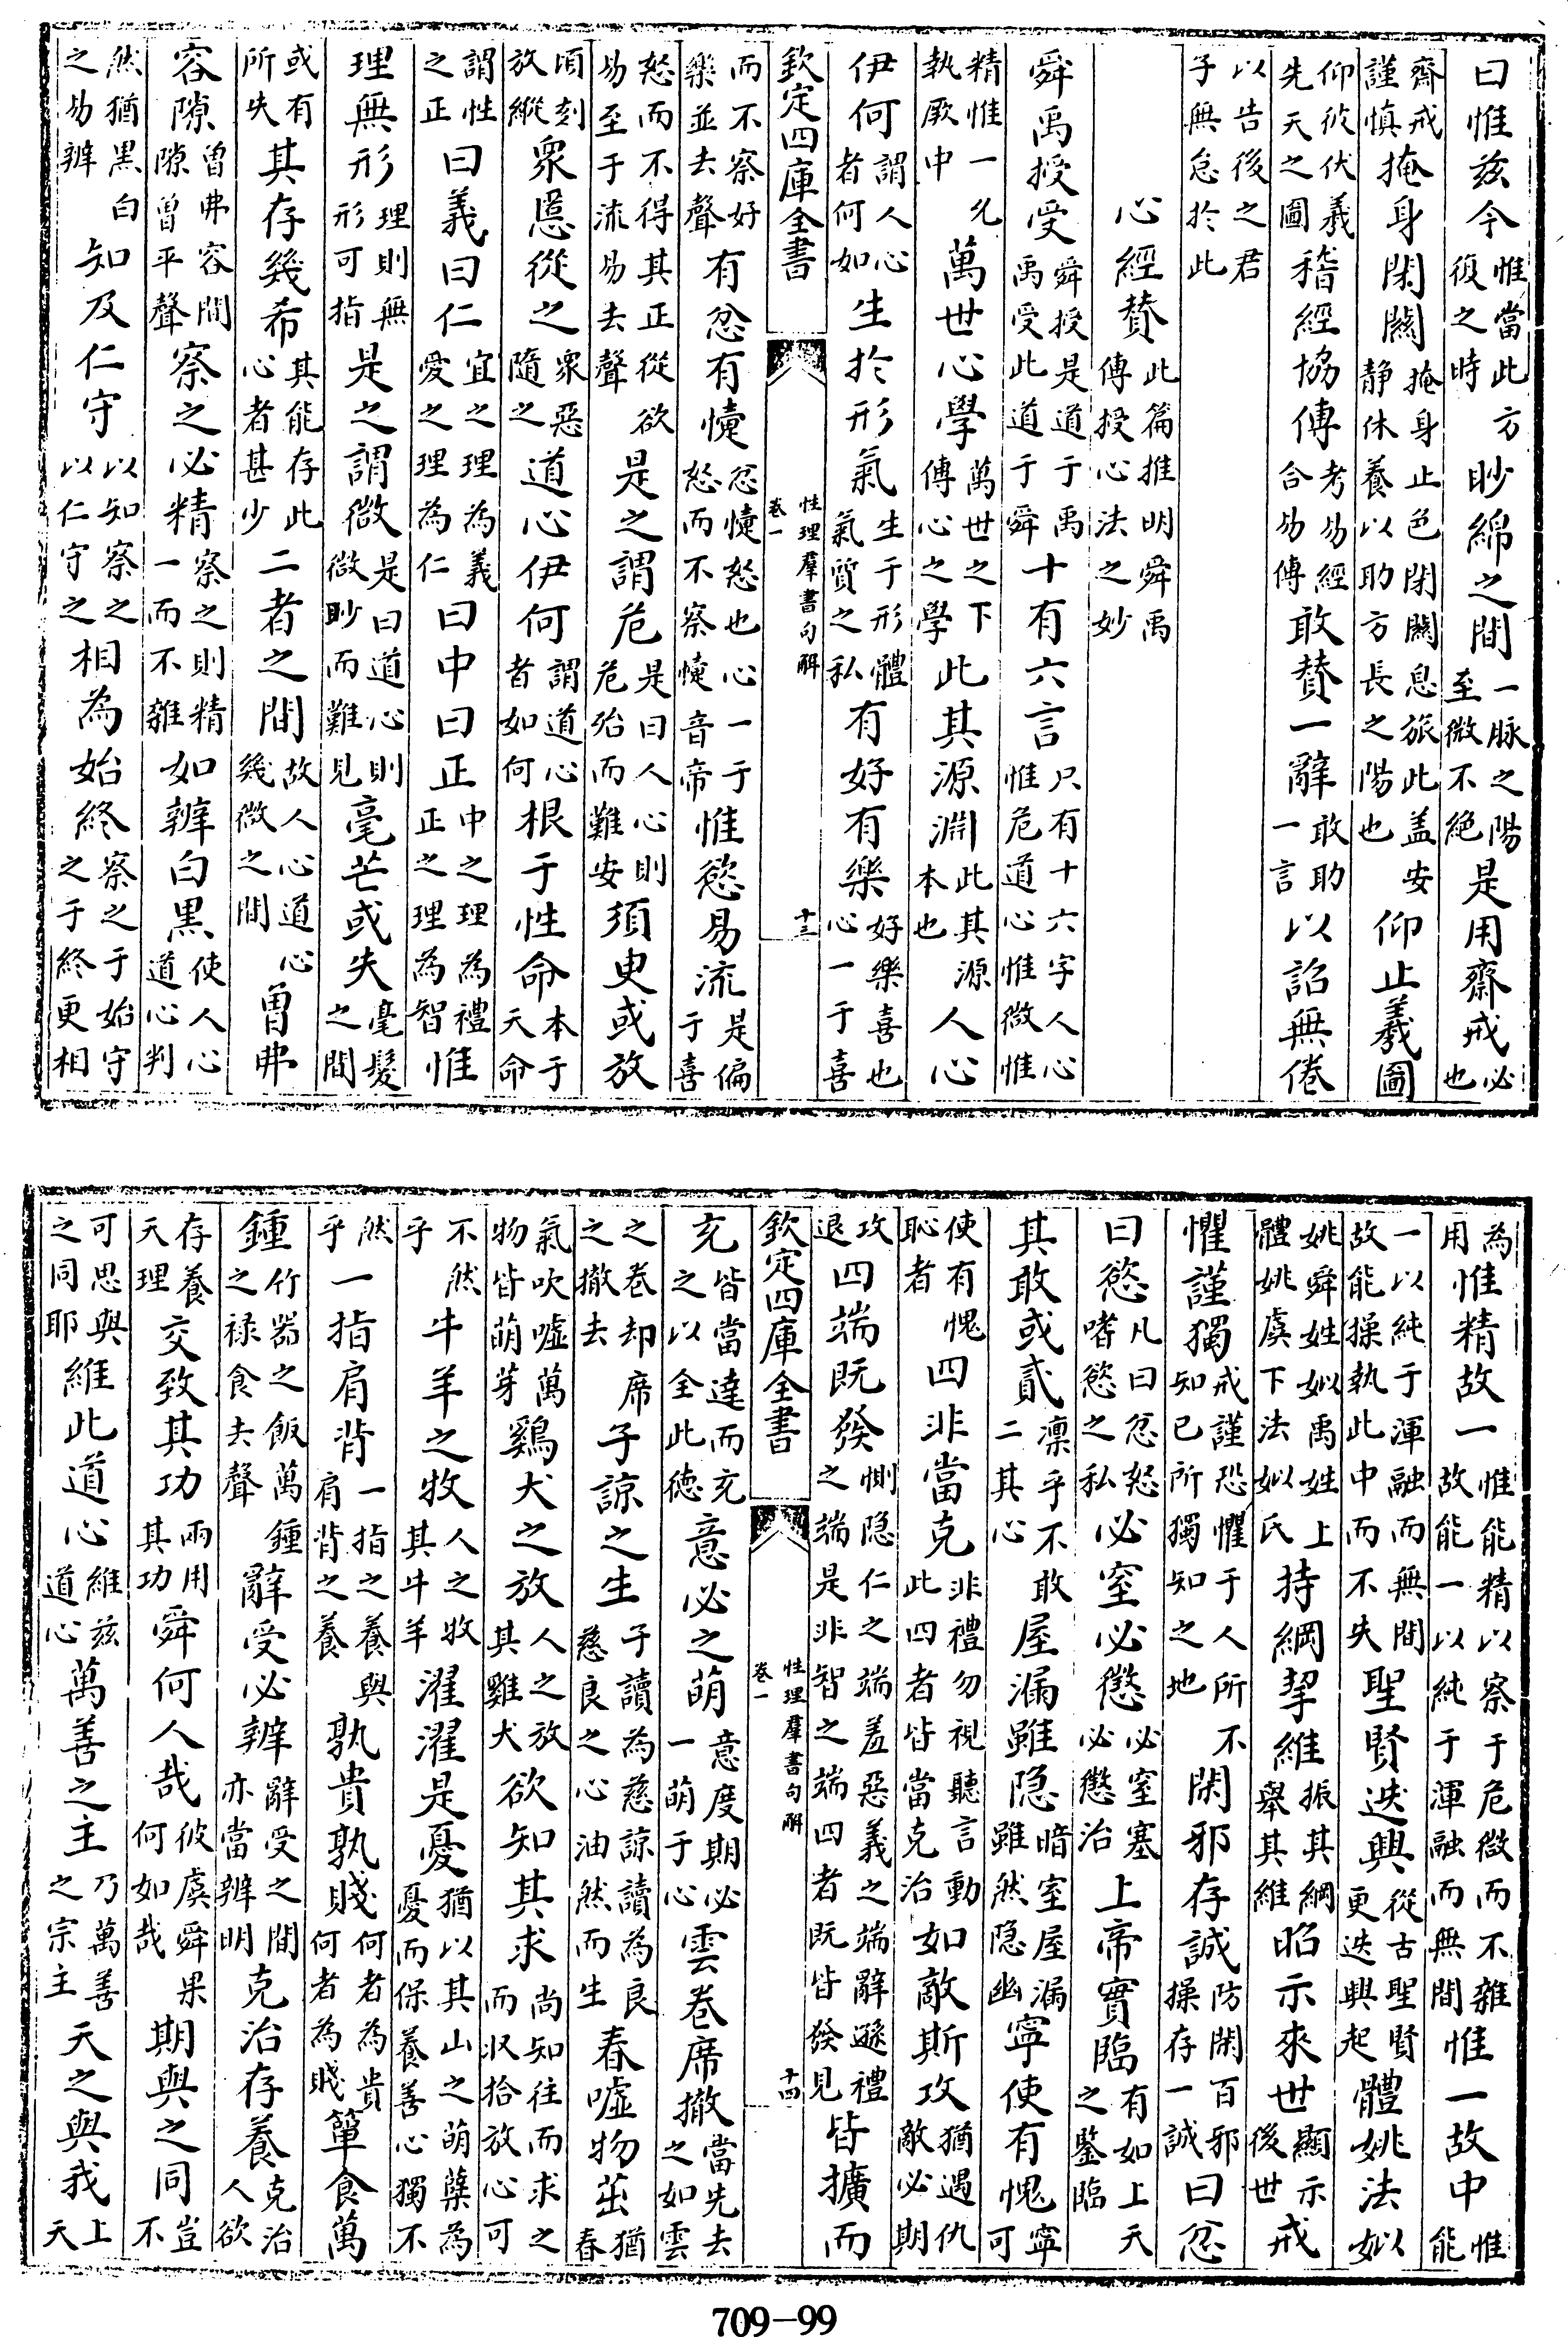 曰惟兹今惟當此方復之時眇綿之間一脉之陽至微不絶是用齋戒必也
齋戒謹慎掩身閉關掩身止色閉關息旅此盖安静休養以助方長之陽也仰止羲圖
仰彼伏羲先天之圖稽經協傳考易經合易傳敢賛一辭敢助一言以詔無倦
以告後之君子無怠於此
心經賛此篇推明舜禹傳授心法之妙
舜禹授受舜授是道于禹禹受此道于舜十有六言只有十六字人心惟危道心惟微惟
精惟一允執厥中萬世心學萬世之下傳心之學此其源淵此其源本也人心
伊何謂人心者何如生於形氣生于形體氣質之私有好有樂好樂喜也心一于喜
欽定四庫全書 性理羣書句解 卷一 十三
而不察好樂並去聲有忿有懥忿懥怒也心一于怒而不察懥音帝惟慾易流是偏于喜
怒而不得其正從欲易至于流易去聲是之謂危是曰人心則危殆而難安須臾或放
頃刻放縱衆慝從之衆惡隨之道心伊何謂道心者如何根于性命本于天命
謂性之正曰義曰仁宜之理為義愛之理為仁曰中曰正中之理為禮正之理為智惟
理無形理則無形可指是之謂微是曰道心則微眇而難見毫芒或失毫髮之間
或有所失其存幾希其能存此心者甚少二者之間故人心道心幾微之間曽弗
容隙曽弗容間隙曽平聲察之必精察之則精一而不雜如辨白黒使人心道心判
然猶黒白之易辨知及仁守以知察之以仁守之相為始終察之于始守之于終更相
為用惟精故一惟能精以察于危微而不雜故能一以純于渾融而無間惟一故中惟能
一以純于渾融而無間故能操執此中而不失聖賢迭興從古聖賢更迭興起體姚法姒
姚舜姓姒禹姓上體姚虞下法姒氏持綱挈維振其綱舉其維昭示來世顯示後世戒
懼謹獨戒謹恐懼于人所不知已所獨知之地閑邪存誠防閑百邪操存一誠曰忿
曰慾凡曰忿怒嗜慾之私必窒必懲必窒塞必懲治上帝實臨有如上天之鑒臨
其敢或貳凛乎不敢二其心屋漏雖隐暗室屋漏雖然隐幽寧使有愧寧可
使有愧恥者四非當克非禮勿視聽言動此四者皆當克治如敵斯攻猶遇仇敵必期
攻退四端既發惻隐仁之端羞惡義之端辭遜禮之端是非智之端四者既皆發見皆擴而
欽定四庫全書 性理羣書句解 卷一 十四
充皆當達而充之以全此徳意必之萌意度期必一萌于心雲巻席撤當先去之如雲
之巻却席之撤去子諒之生子讀為慈諒讀為良慈良之心油然而生春嘘物茁猶春
氣吹嘘萬物皆萌芽鷄犬之放人之放其雞犬欲知其求尚知往而求之而収拾放心可
不然乎牛羊之牧人之牧其牛羊濯濯是憂猶以其山之萌蘖為憂而保養善心獨不
然乎一指肩背一指之養與肩背之養孰貴孰賤何者為貴何者為賤簞食萬
鍾竹器之飯萬鍾之禄食去聲辭受必辨辭受之間亦當辨明克治存養克治人欲
存養天理交致其功兩用其功舜何人哉彼虞舜果何如哉期與之同豈不
可思與之同耶維此道心維兹道心萬善之主乃萬善之宗主天之與我上天
709-99